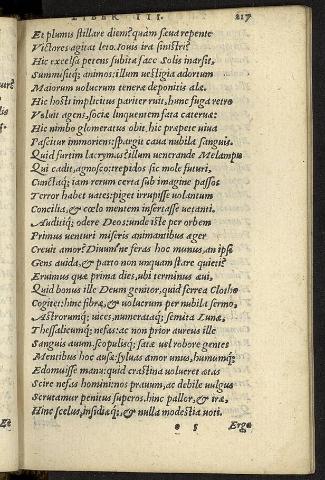 LIBER III. 217
Et plumis stillare diem? quàm sæua repente
Victores agitat leto Iouis ira sinistri?
Hic excelsa petens subita face Solis inarsit,
Summisitq; animos: illum uestigia adortum
Maiorum uolucrum teneræ deposuistis alæ.
Hic hosti implicitus pariter ruit, hunc fuga retro
Voluit agens, sociæ linquentem fata cateruæ:
Hic nimbo glomeratus obit, hic præpete uiua
Pascitur immoriens: spargit caua nubila sanguis.
Quid furtim lacrymas? illum uenerande Melampu
Qui cadit, agnosco: trepidos sic mole futuri,
Cunctaq; iam rerum certa sub imagine passos
Terror habet uates: piget irrupisse uolantum
Concilia, & cœlo mentem inseriasse uetanti.
Auditiq; odere Deos: unde iste per orbem
Primus uenturi miseris animantibus æger
Creuit amor? Diuumne feras hoc munus, an ipsa
Gens auida, & parto non unquam stare quieti?
Eruimus quæ prima dies, ubi terminus æui,
Quid bonus ille Deum genitor, quid ferrea Clotho
Cogitet: hinc fibræ, & uolucrum per nubila sermo,
Astrorumq; uices, numerataq; semita Lunæ,
Thessalicumq; nefas: ac non prior aureus ille
Sanguis auum. scopulisq; satæ uel robore gentes
Mentibus hoc ausæ: syluas amor unus, humumq;
Edomuisse manu: quid crastina uolueret ætas
Scire nefas homini: nos prauum, ac debile uulgus
Scrutamur penitus superos: hinc pallor, & iræ,
Hinc scelus, insidiæq;, & nulla modestia uoti.
e 5 Ergo
Et